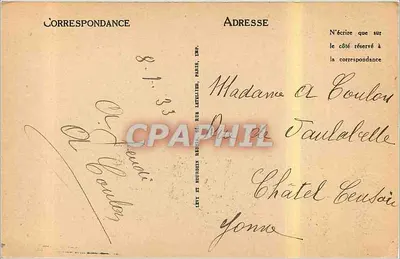 CORRESPONDANCE
8-1-33
A Jeudi
A Coulon
LÉVY ET NEURDEIN RÉUNIS, RUE LETELLIER, PARIS, IMP.
ADRESSE
N'écrire que sur
le côté réservé à
la correspondance
Madame A Coulon
Rue de Vaulabelle
Châtel Censoir
Yonne
CPAPHIL.COM